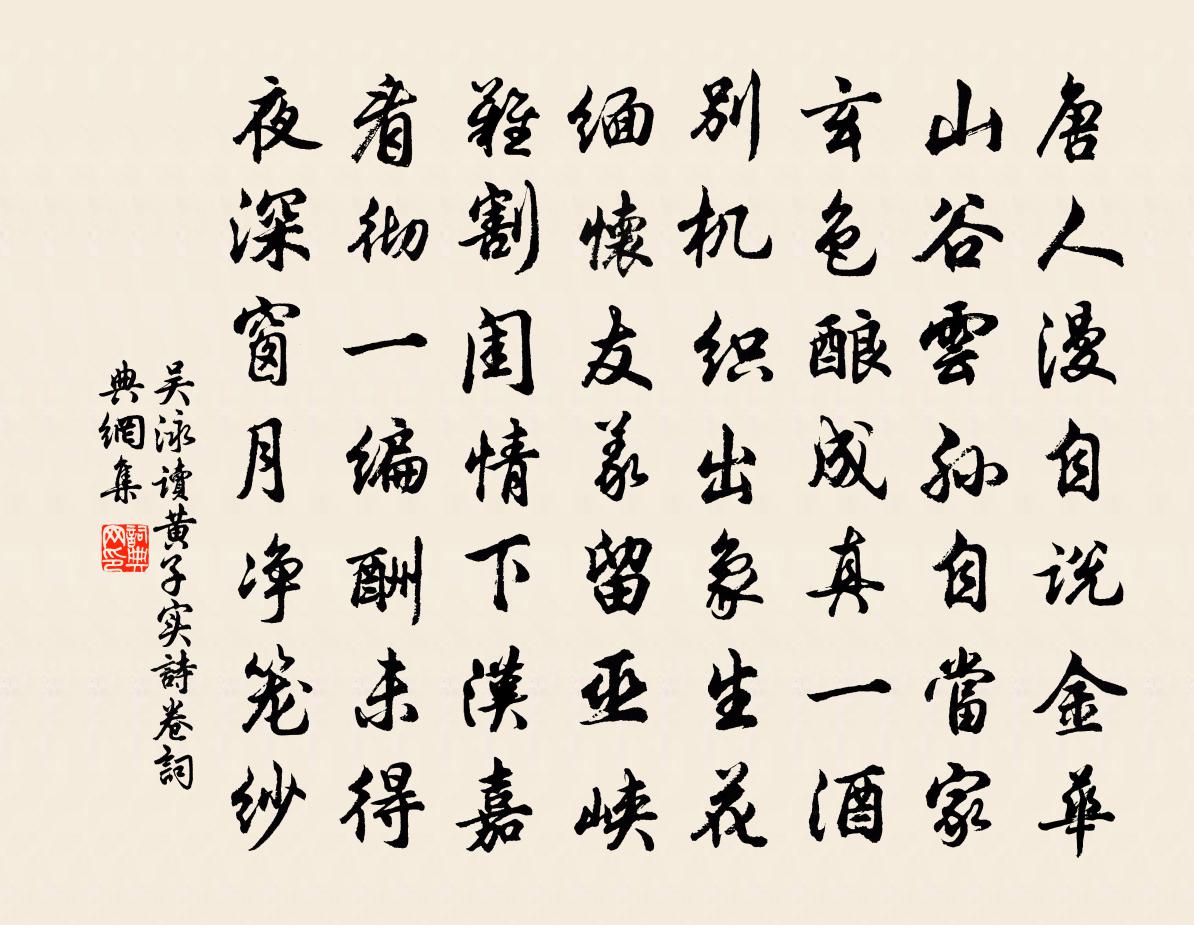 唐人漫自说金華
山谷雲孙自當家
玄色酿成真一酒
别机织出象生花
缅懷友义留巫峡
难割闺情下漢嘉
看彻一编酬未得
夜深窗月净笼纱
吴泳读黄子实詩卷詞
典網集
詞典网印